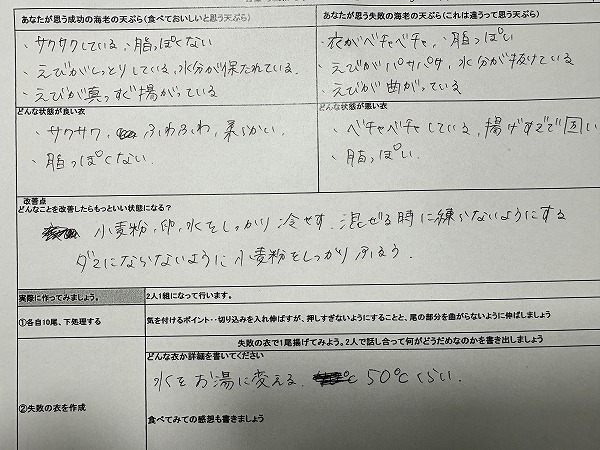 あなたが思う成功の海老の天ぷら(食べておいしいと思う天ぷら)
・サクサクしている、脂っぽくない
・えびがしっとりしている、水分が保たれている.
・えびが真っすぐ揚がっている
どんな状態が良い衣
・サクサク、ふわふわ、柔らかい.
・脂っぽくない.
あなたが思う失敗の海老の天ぷら(これは違うって思う天ぷら)
・衣がベチャベチャ、脂っぽい
・えびがパサパサ、水分が抜けている
・えびが曲がっている
どんな状態が悪い衣
・ベチャベチャしている、揚げすぎで固い
・脂っぽい.
改善点
どんなことを改善したらもっといい状態になる?
小麦粉,卵,水をしっかり冷やす.混ぜる時に練らないようにする
ダマにならないように小麦粉をしっかりふるう.
実際に作ってみましょう。
2人1組になって行います。
①各自10尾、下処理する
気を付けるポイント‥切り込みを入れ伸ばすが、押しすぎないようにすることと、尾の部分を曲がらないように伸ばしましょう
失敗の衣で1尾揚げてみよう。2人で話し合って何がどうだめなのかを書き出しましょう
どんな衣か詳細を書いてください
水をお湯に変える. 50℃くらい.
②失敗の衣を作成
食べてみての感想も書きましょう